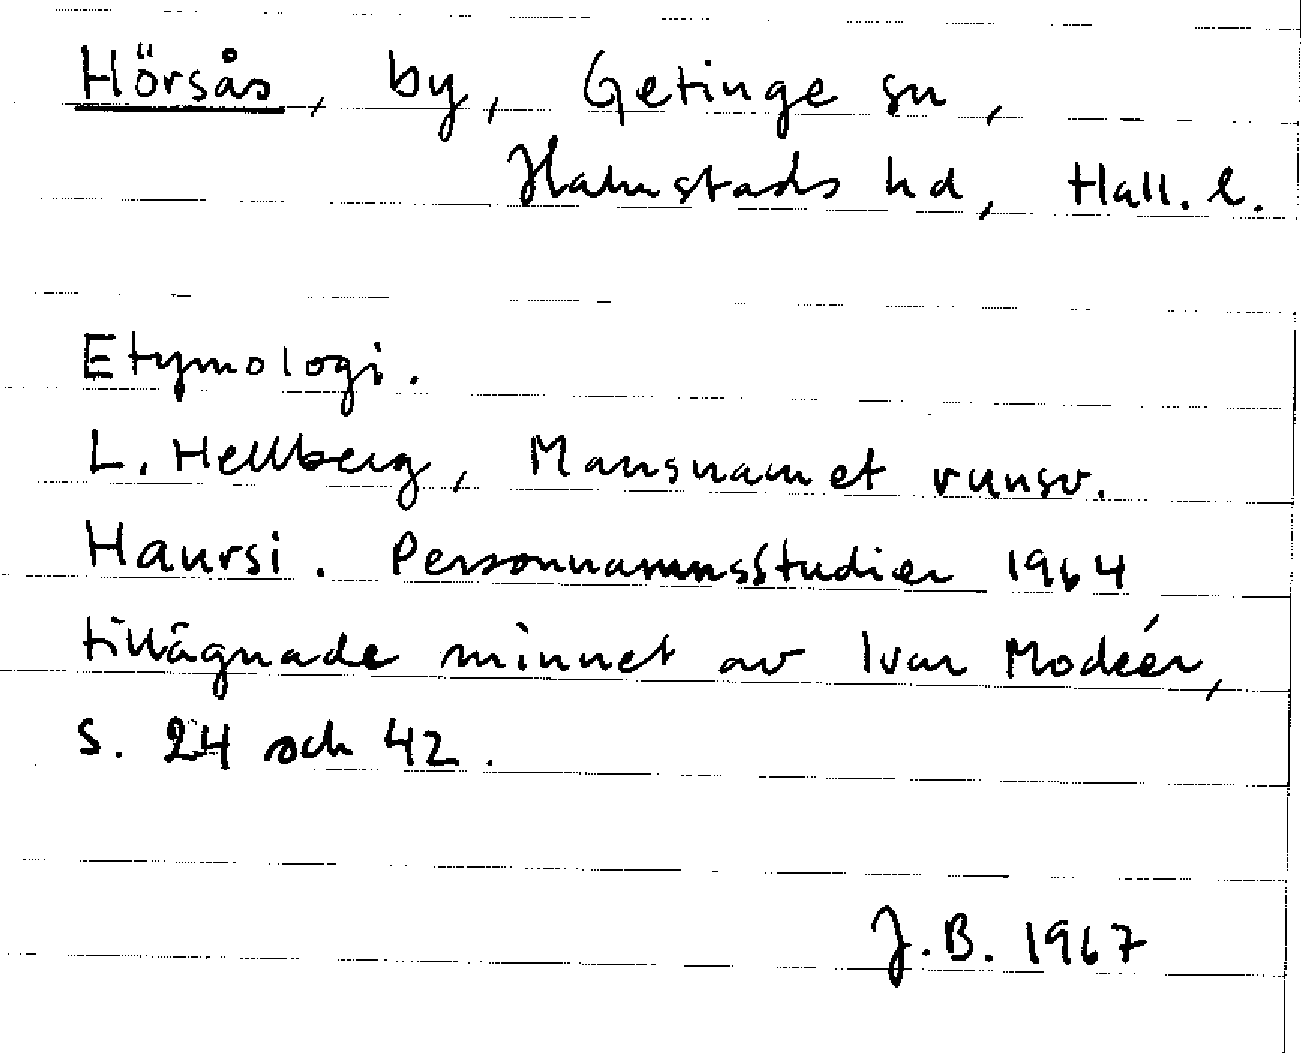 Hörsås, by, Getinge sn,
Halmstads hd, Hall. l.
Etymologi.
L. Hellberg, Mansnamnet runsv.
Haursi. Personnamnsstudier 1964
tillägnade minnet av Ivar Modéer,
s. 24 och 42.
J.B. 1967